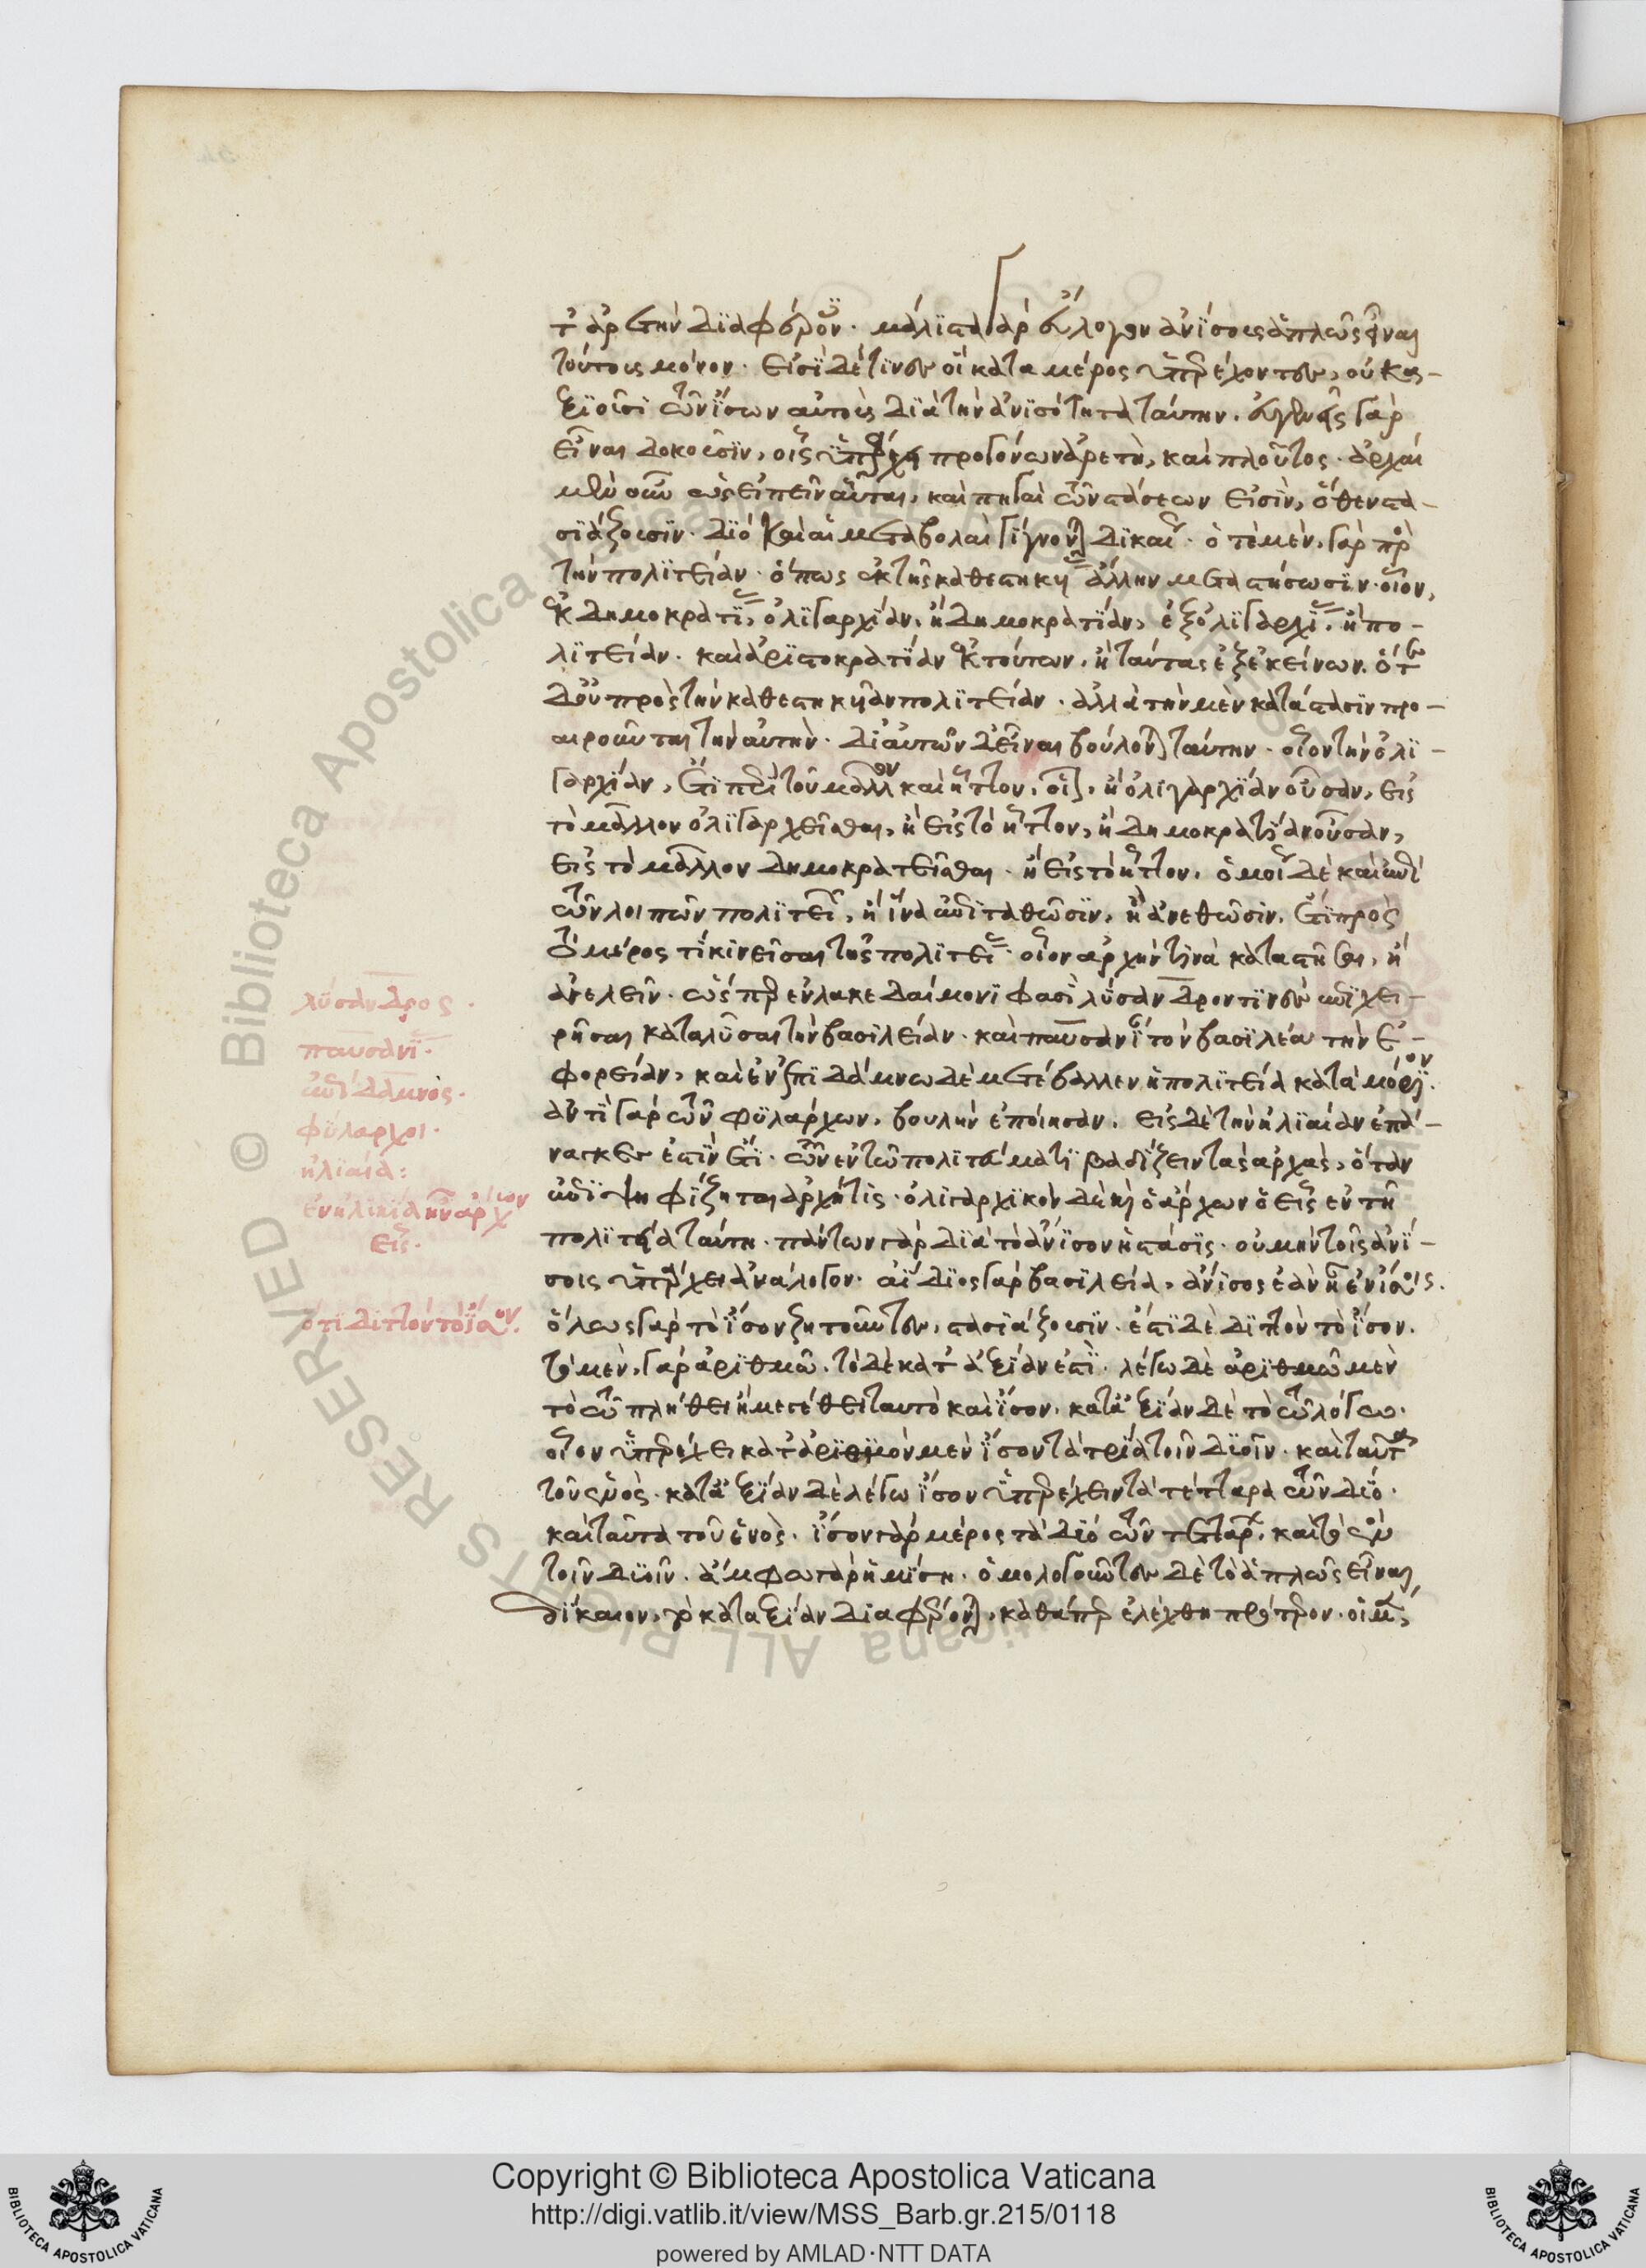 τ᾽ ἀρετὴν διαφέρον· μάλιστα γὰρ εὔλογον ἀνίσους ἁπλῶς εἶναι
τούτους μόνον. εἰσὶ δέ τινες οἳ κατὰ γένος ὑπερέχοντες, οὐκ ἀ-
ξιοῦσι τῶν ἴσων αὑτοὺς διὰ τὴν ἀνισότητα ταύτην. εὐγενεῖς γὰρ
εἶναι δοκοῦσιν, οἷς ὑπάρχει προγόνων ἀρετὴ, καὶ πλοῦτος. ἀρχαὶ
μὲν οὖν ὡς εἰπεῖν αὗται, καὶ πηγαὶ τῶν στάσεων εἰσὶν, ὅθεν στα-
σιάζουσιν. διὸ καὶ αἱ μεταβολαὶ γίγνονται δικαίως. ὁτὲ μὲν γὰρ πρὸς
τὴν πολιτείαν. ὅπως ἐκ τῆς καθεστηκυίας ἄλλην μεταστήσωσιν. οἷον,
ἐκ δημοκρατίας, ὀλιγαρχίαν, ἢ δημοκρατίαν, ἐξ ὀλιγαρχίας. ἢ πο-
λιτείαν. καὶ ἀριστοκρατίαν ἐκ τούτων, ἢ ταύτας ἐξ ἐκείνων. ὁτὲ
δ᾽ οὐ πρὸς τὴν καθεστηκυῖαν πολιτείαν. ἀλλὰ τὴν μὲν κατάστασιν προ-
αιροῦνται τὴν αὐτὴν. δι᾽ αὑτῶν δ᾽ εἶναι βούλονται ταύτην. οἷον τὴν ὀλι-
γαρχίαν, ἔτι περὶ τοῦ μᾶλλον καὶ ἧττον. οἷον, ἢ ὀλιγαρχίαν οὖσαν, εἰς
τὸ μᾶλλον ὀλιγαρχεῖσθαι, ἢ εἰς τὸ ἧττον, ἢ δημοκρατίαν οὖσαν,
εἰς τὸ μᾶλλον δημοκρατεῖσθαι. ἢ εἰς τὸ ἧττον. ὁμοίως δὲ καὶ ἐπὶ
τῶν λοιπῶν πολιτειῶν, ἢ ἵνα ἐπιταθῶσιν, ἢ ἀνεθῶσιν. ἔτι πρὸς
τὸ μέρος τι κινεῖσαι τῆς πολιτείας. οἷον ἀρχήν τινα καταστῆσαι, ἢ
ἀνελεῖν. ὥσπερ ἐν λακεδαίμονι φασὶ λύσανδρον τινὲς ἐπιχει-
ρῆσαι καταλῦσαι τὴν βασιλείαν. καὶ παυσανίαν τὸν βασιλέα τὴν ἐ-
φορείαν, καὶ ἐν ἐπιδάμνω δὲ μετέβαλλεν ἡ πολιτεία κατὰ μόριον.
ἀντὶ γὰρ τῶν φυλάρχων, βουλὴν ἐποίησαν. εἰς δὲ τὴν ἡλιαίαν ἐπά-
ναγκες ἐστὶν ἔτι. τῶν ἐν τῶ πολιτεύματι βαδίζειν τὰς ἀρχὰς, ὅταν
ἐπιψηφίζηται ἀρχήτις. ὀλιγαρχικὸν δὲ καὶ ὁ ἄρχων ὁ εἷς ἐν τῆ
πολιτεία ταύτη. πάντων γὰρ διὰ τὸ ἄνισον ἡ στάσις. οὐ μὴν τοῖς ἀνί-
σοις ὑπάρχει ἀνάλογον. ἀΐδιος γὰρ βασιλεία, ἄνισος ἐὰν ἦ ἐν ἴσοις.
ὅλως γὰρ τὸ ἴσον ζητοῦντες, στασιάζουσιν. ἔστι δὲ διττὸν τὸ ἴσον.
τὸ μὲν, γὰρ ἀριθμῶ. τὸ δὲ κατ᾽ ἀξίαν ἐστὶ. λέγω δὲ ἀριθμῶ μὲν
τὸ τῶ πλήθει ἢ μεγέθει ταυτὸ καὶ ἴσον. κατ᾽ ἀξίαν δὲ τὸ τῶ λόγω.
οἷον ὑπερέχει κατ᾽ ἀριθμὸν μὲν ἴσον τὰ τρία τοῖν δυοῖν. καὶ ταῦτα
τοῦ ἑνὸς. κατ᾽ ἀξίαν δὲ λέγω ἴσον ὑπερέχειν τὰ τέτταρα τῶν δύο.
καὶ ταῦτα τοῦ ἑνὸς. ἴσον γὰρ μέρος τὰ δύο τῶν τεττάρων, καὶ τὸ ἓν
τοῖν δυοῖν. ἄμφω γὰρ ἡμίση. ὁμολογοῦντες δὲ τὸ ἁπλῶς εἶναι
δίκαιον, τὸ κατ᾽ ἀξίαν διαφέρονται, καθάπερ ἐλέχθη πρότερον. οἱ μὲν,
λύσανδρος.
παυσανίας.
ἐπίδαμνος.
φύλαρχοι.
ἡλιαία:
ἐν ἡλιαία ἦν ἄρχων
εἷς.
ὅτι διττὸν τὸ ἴσον.
Copyright © Biblioteca Apostolica Vaticana
http://digi.vatlib.it/view/MSS_Barb.gr.215/0118
powered by AMLAD·NTT DATA
BIBLIOTECA APOSTOLICA VATICANA
BIBLIOTECA APOSTOLICA VATICANA